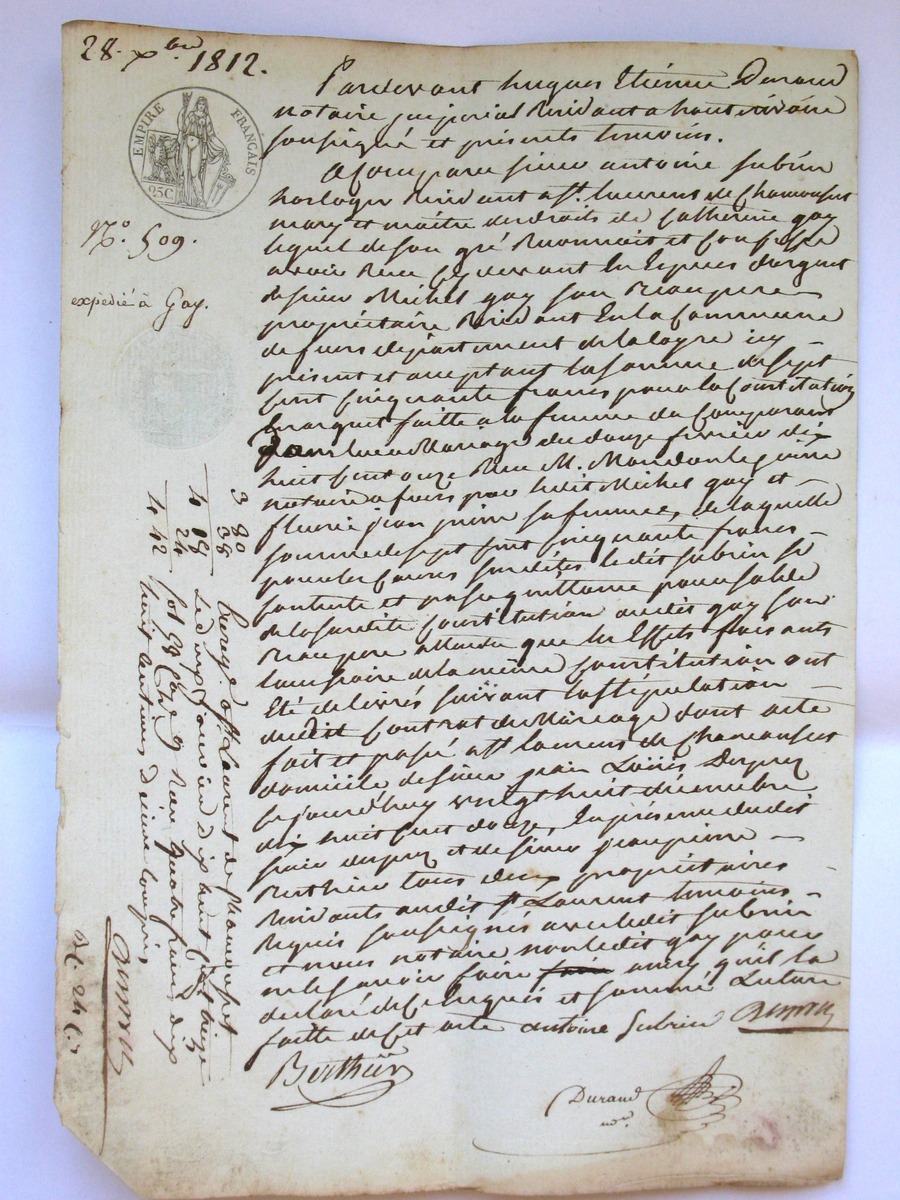 28. xbre 1812.
EMPIRE FRANÇAIS
25C
No. 509.
expédié à Gay.
Pardevant hugues Etiénne Durand
notaire jmperial Residant a haute rivoire
soussigné et présents temoins.
A Comparu sieur antoine Subrin
horloger Residant a St. laurens de Chamousset
mary et maitre des droits de Catherine gay
lequel de son gré Reconnait et Confesse
avoir Reçu cy devant En Espèces d'argent
de sieur Michel gay son Beaupere
propriétaire Résidant En la Commune
de feurs département de la loyre icy
présent et acceptant la somme de sept
Cent Cinquante francs pour la Constitution
En argent faitte a la femme du Comparant
dans leur Mariage du douze fevrier dix
huit Cent onze Reçu M. Mondon le jeune
notaire a feurs par ledit Michel gay et
fleurie jean pierre sa femme, de laquelle
somme de sept Cent Cinquante francs
pour les Causes susdites le dit Subrin se
Contente et passe quittance pour solde
de la susdite Constitution audit gay son
Beaupere attendu que les Effets faisants
la même Constitution ont
Eté delivrés suivant la stipulation
dudit Contrat de Mariage dont acte
fait et passé a St laurens de Chamousset
domicile de sieur jean Loüis Dupuy
Cejourd'huy vingt huit décembre
dix huit Cent douze, En présence dudit
sieur dupuy et de sieur jean pierre
Berthier tous deux propriétaires
Residants audit St Laurent temoins
Requis soussignés avec ledit Subrin
et nous notaire non ledit gay pour
ne le savoir faire ainsy qu'il la
declaré de Ce Enquis et sommé Lecture
faitte de Cet acte antoine Subrin
Berthier
Durand
nore.
3 80
38
4 18
24
4 42
Enreg. a St. Laurent de Chamousset
Le onze janvier dix huit cent treize
fol. 98 Case 9 Reçu quatre francs dix
huit centimes dixieme compris
24 C.